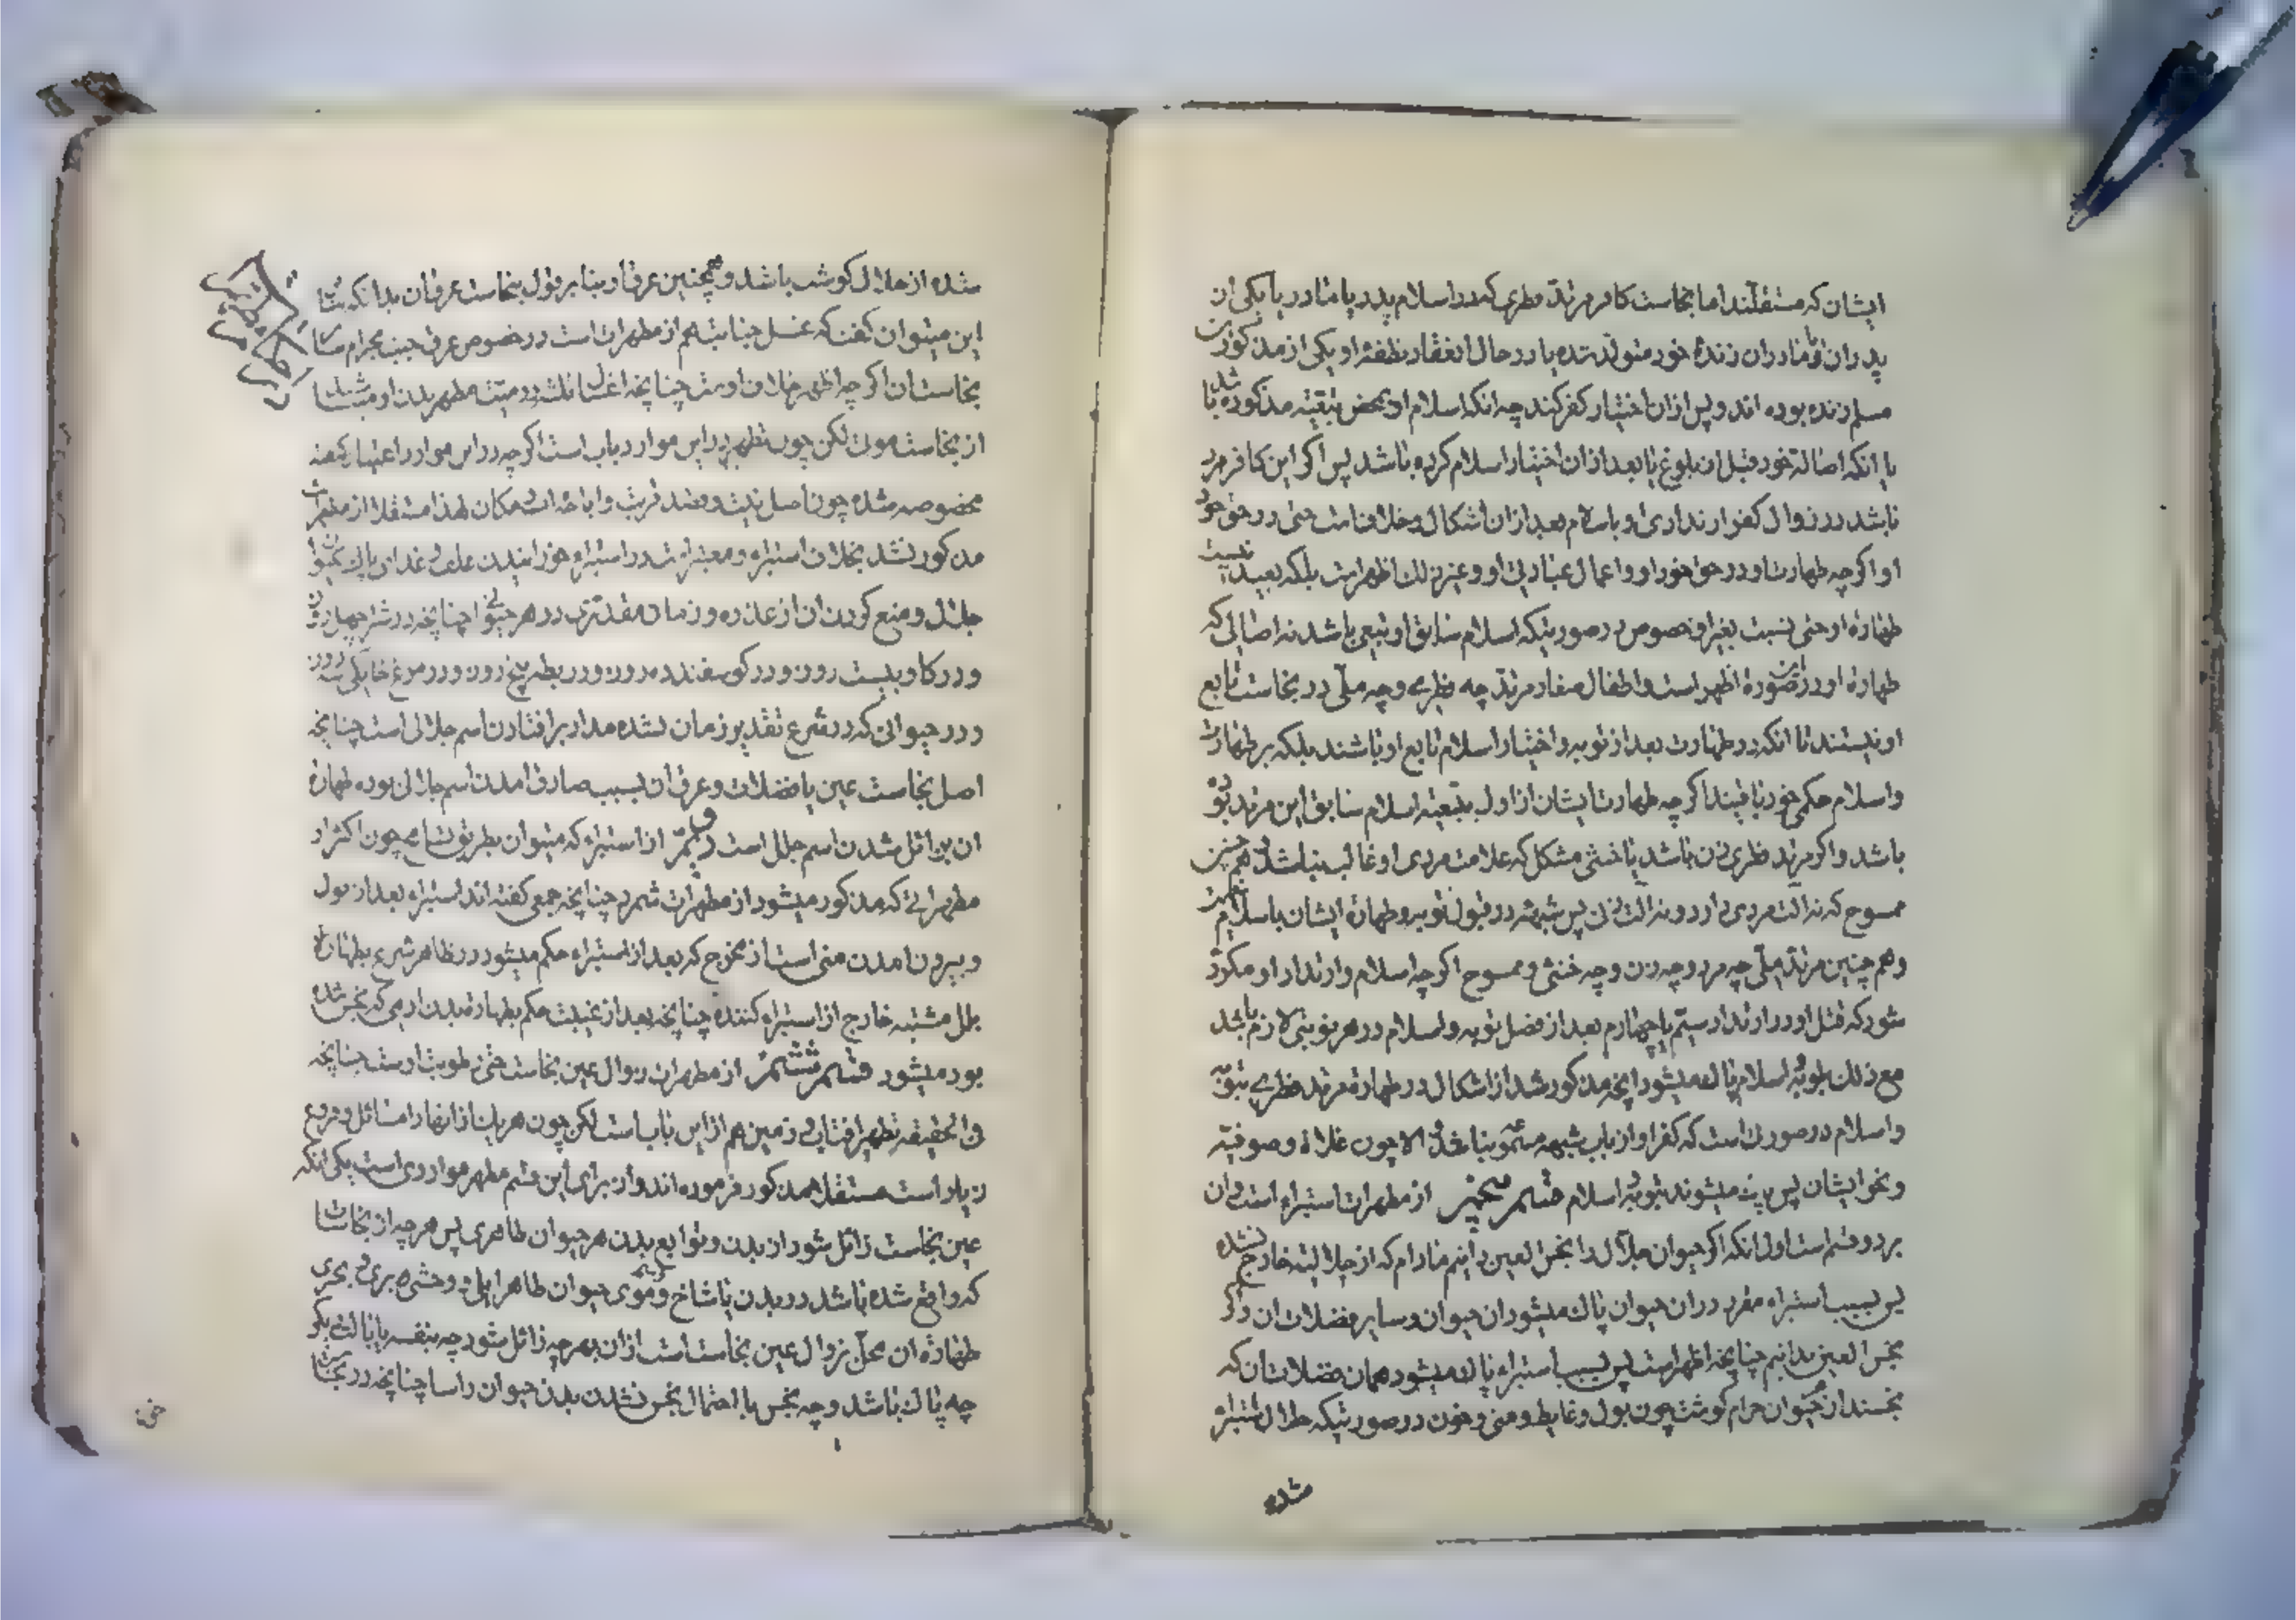 ایشان که مستقلند اما نجاست کافر مرتد فطری که در اسلام پدر یا مادر یا یکی از
پدران و مادران زندهٔ خود متولد شده یا در حال انعقاد نطفه او یکی از مذکورین
مسلم زنده بوده اند و پس از ان اختیار کفر کند چه انکه اسلام او بمحض تبعیته مذکوره شد با
یا انکه اصالة خود قبل از بلوغ یا بعد از ان اختیار اسلام کرده باشد پس اگر این کافر مرد
باشد در زوال کفر ارتدادی او باسلام بعد از ان اشکال و خلافست حتی در حق خود
او اگرچه طهارت او در حق خود او و اعمال عبادتی او و غیر ذلک اظهر است بلکه بعید نیست
طهارة او حتی نسبت بغیر او خصوص در صورتیکه اسلام سابق او تبعی باشد نه اصالی که
طهارة او در انصورة اظهر است و اطفال صغار مرتد چه فطری و چه ملی در نجاست تابع
او نیستند تا انکه در طهارت بعد از توبه و اختیار اسلام تابع او باشند بلکه بر طهارت
و اسلام حکمی خود باقیند اگرچه طهارت ایشان از اول بتبعیته اسلام سابق این مرتد بوده
باشد و اگر مرتد فطری زن باشد یا خنثی مشکل که علامت مردی او غالب نباشد و همچنین
ممسوح که نه الت مردی دارد و نه الت زن پس شبهه در قبول توبه و طهارة ایشان باسلام نیست
و هم چنین مرتد ملی چه مرد و چه زن و چه خنثی و ممسوح اگرچه اسلام و ارتداد او مکرر
شود که قتل او در ارتداد سیم یا چهارم بعد از فصل توبه و اسلام در هر نوبتی لازم باشد
مع ذلک بتوبه و اسلام پاک میشود انچه مذکور شد از اشکال در طهارة مرتد فطری بتوبه
و اسلام در صورتی است که کفر او از باب شبهه نباشد و الا چون غلاة و صوفیه
و نحو ایشان پس پاک میشوند بتوبه و اسلام قسم پنجم از مطهرات استبراء است و ان
بر دو قسم است اول انکه اگر حیوان جلال را نجس العین دانیم مادام که از جلالیته خارج نشده
پس بسبب استبراء مقرر در ان حیوان پاک میشود ان حیوان و سایر فضلات ان و اگر
نجس العین ندانیم چنانچه اظهر است پس بسبب استبراء پاک میشود همان فضلات ان که
نجسند از حیوان حرام گوشت چون بول و غایط و منی و خون در صورتیکه جلال استبراء
شده
شده از حلال گوشت باشد و همچنین عرق او بنا بر قول بنجاست عرق ان بدانکه
این میتوان گفت که غسل جنابت هم از مطهرات است در خصوص عرق جنب بحرام
نجاست ان اگرچه اظهر خلاف اوست چنانچه اغسال ثلث در میت مطهر بدن او میباشند
از نجاست موت لکن چون تطهیر در این موارد باب است اگرچه در این موارد اعتبار کیفیة
مخصوصه شده چون اصل نیت و قصد قربت و اباحه اب و مکان لهذا مستقلا از مطهرات
مذکور نشد بخلاف استبراء و معتبر است در استبراء خورانیدن علف و غذای پاک بحیوان
جلال و منع کردن ان از عذره و زمان مقدر ترک در هر حیوانی چنانچه در شتر چهل روز
و در گاو بیست روز و در گوسفند ده روز و در بط پنج روز و در مرغ خانگی سه روز
و در حیوانی که در شرع تقدیر زمان نشده مدار بر افتادن اسم جلالی است چنانچه
اصل نجاست عین یا فضلات و عرق ان بسبب صادق امدن اسم جلالی بوده طهارة
ان بزائل شدن اسم جلال است دویم از استبراء که میتوان بطریق تسامح چون اکثر از
مطهراتی که مذکور میشود از مطهرات شمرد چنانچه جمعی گفته اند استبراء بعد از بول
و بیرون امدن منی است از مخرج که بعد از استبراء حکم میشود در ظاهر شرع بطهارة
بلل مشتبه خارج از استبراء کننده چنانچه بعد از غیبت حکم بطهارة بدن ادمی که نجس شده
بود میشود قسم ششم از مطهرات زوال عین نجاست حتی رطوبت اوست چنانچه
فی الحقیقه تطهیر افتابی و زمین هم از این باب است لکن چون هر یک از انها را مسائل و فروع
زیاد است مستقلا مذکور فرموده اند و از برای این قسم مطهر مواردی است یکی انکه
عین نجاست زائل شود از بدن و توابع بدن هر حیوان ظاهری پس هر چه از نجاسات
که واقع شده باشد در بدن یا شاخ و موی حیوان طاهر اهلی و وحشی بری و بحری
طهارة ان محل بزوال عین نجاست است از ان بهر چه زائل شود چه بنفسه یا بپاک دیگر
چه پاک باشد و چه نجس با احتمال نجس نشدن بدن حیوان راسا چنانچه در نجاسات